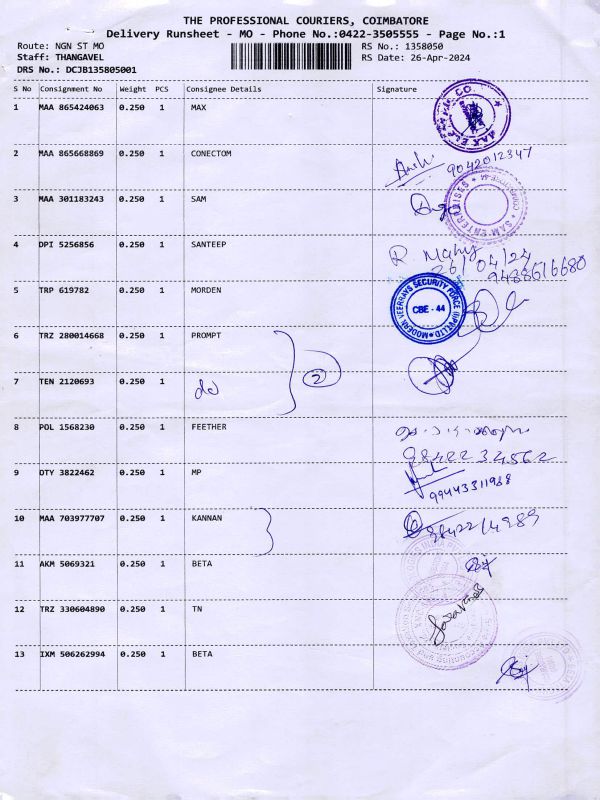 THE PROFESSIONAL COURIERS, COIMBATORE
Delivery Runsheet - MO - Phone No.:0422-3505555 - Page No.:1
Route: NGN ST MO
RS No.: 1358050
Staff: THANGAVEL
RS Date: 26-Apr-2024
DRS No.: DCJB135805001
S No Consignment No Weight PCS Consignee Details Signature
1 MAA 865424063 0.250 1 MAX
2 MAA 865668869 0.250 1 CONECTOM
9042012347
3 MAA 301183243 0.250 1 SAM
SAM ENTERPRISES
4 DPI 5256856 0.250 1 SANTEEP
26/04/24
9488616680
5 TRP 619782 0.250 1 MORDEN
MODERN VEERRAYS SECURITY FORCE (I) PVT LTD
CBE - 44
6 TRZ 280014668 0.250 1 PROMPT
2
7 TEN 2120693 0.250 1 do
8 POL 1568230 0.250 1 FEETHER
9842234562
9 DTY 3822462 0.250 1 MP
9944331168
10 MAA 703977707 0.250 1 KANNAN
9842214989
11 AKM 5069321 0.250 1 BETA
12 TRZ 330604890 0.250 1 TN
13 IXM 506262994 0.250 1 BETA